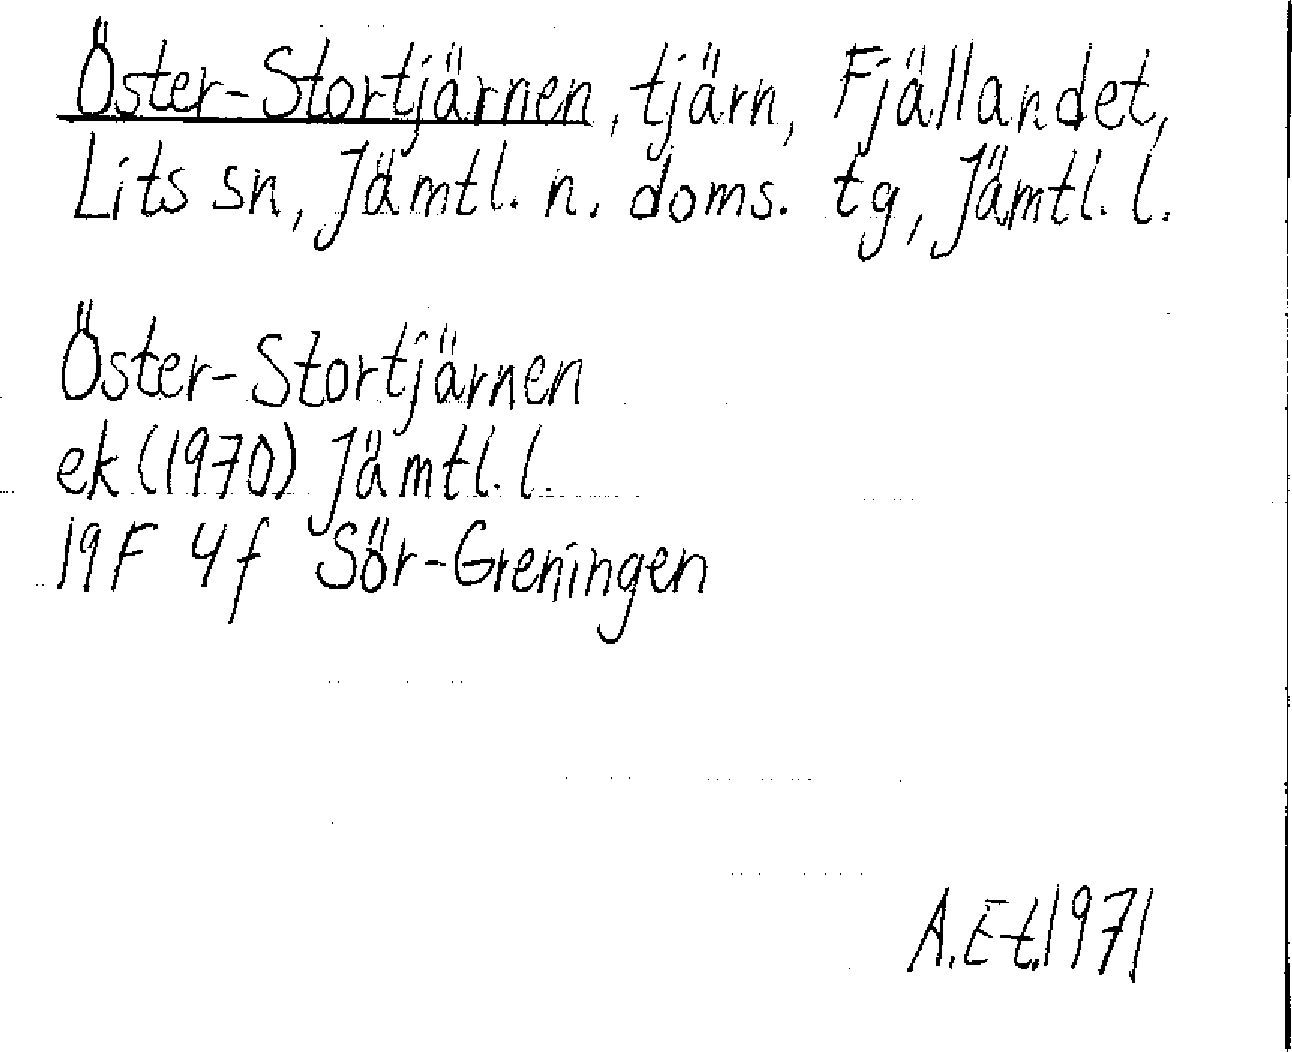 Öster-Stortjärnen, tjärn, Fjällandet,
Lits sn, Jämtl. n. doms. tg, Jämtl. l.
Öster-Stortjärnen
ek (1970) Jämtl. l.
19F 4f Sör-Greningen
A.E-t.1971